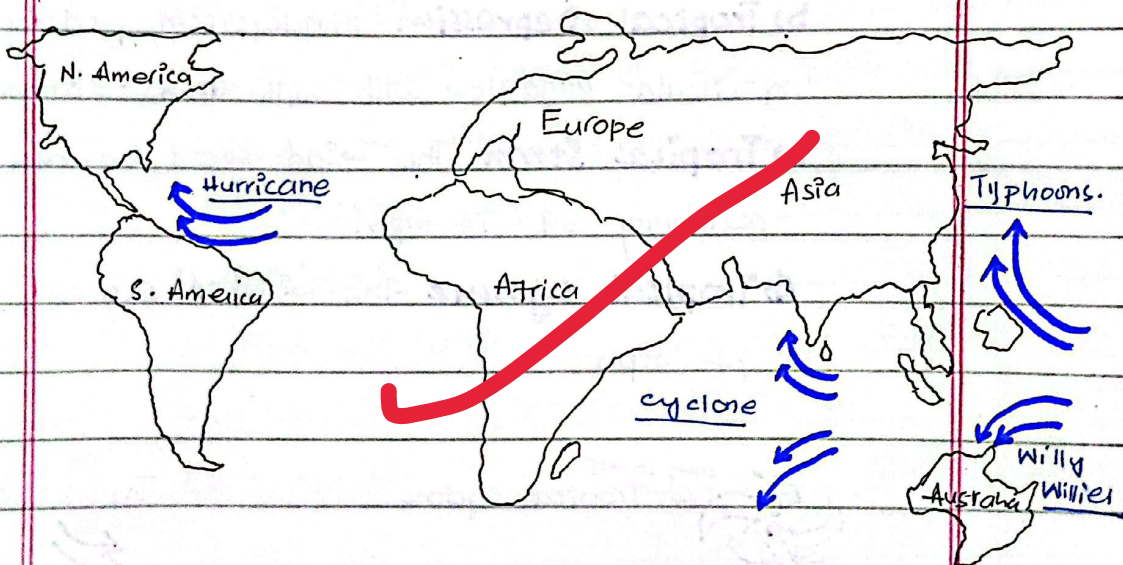 N. America
Europe
Hurricane
Asia
Typhoons.
S. America
Africa
cyclone
Willy
Willies
Australia